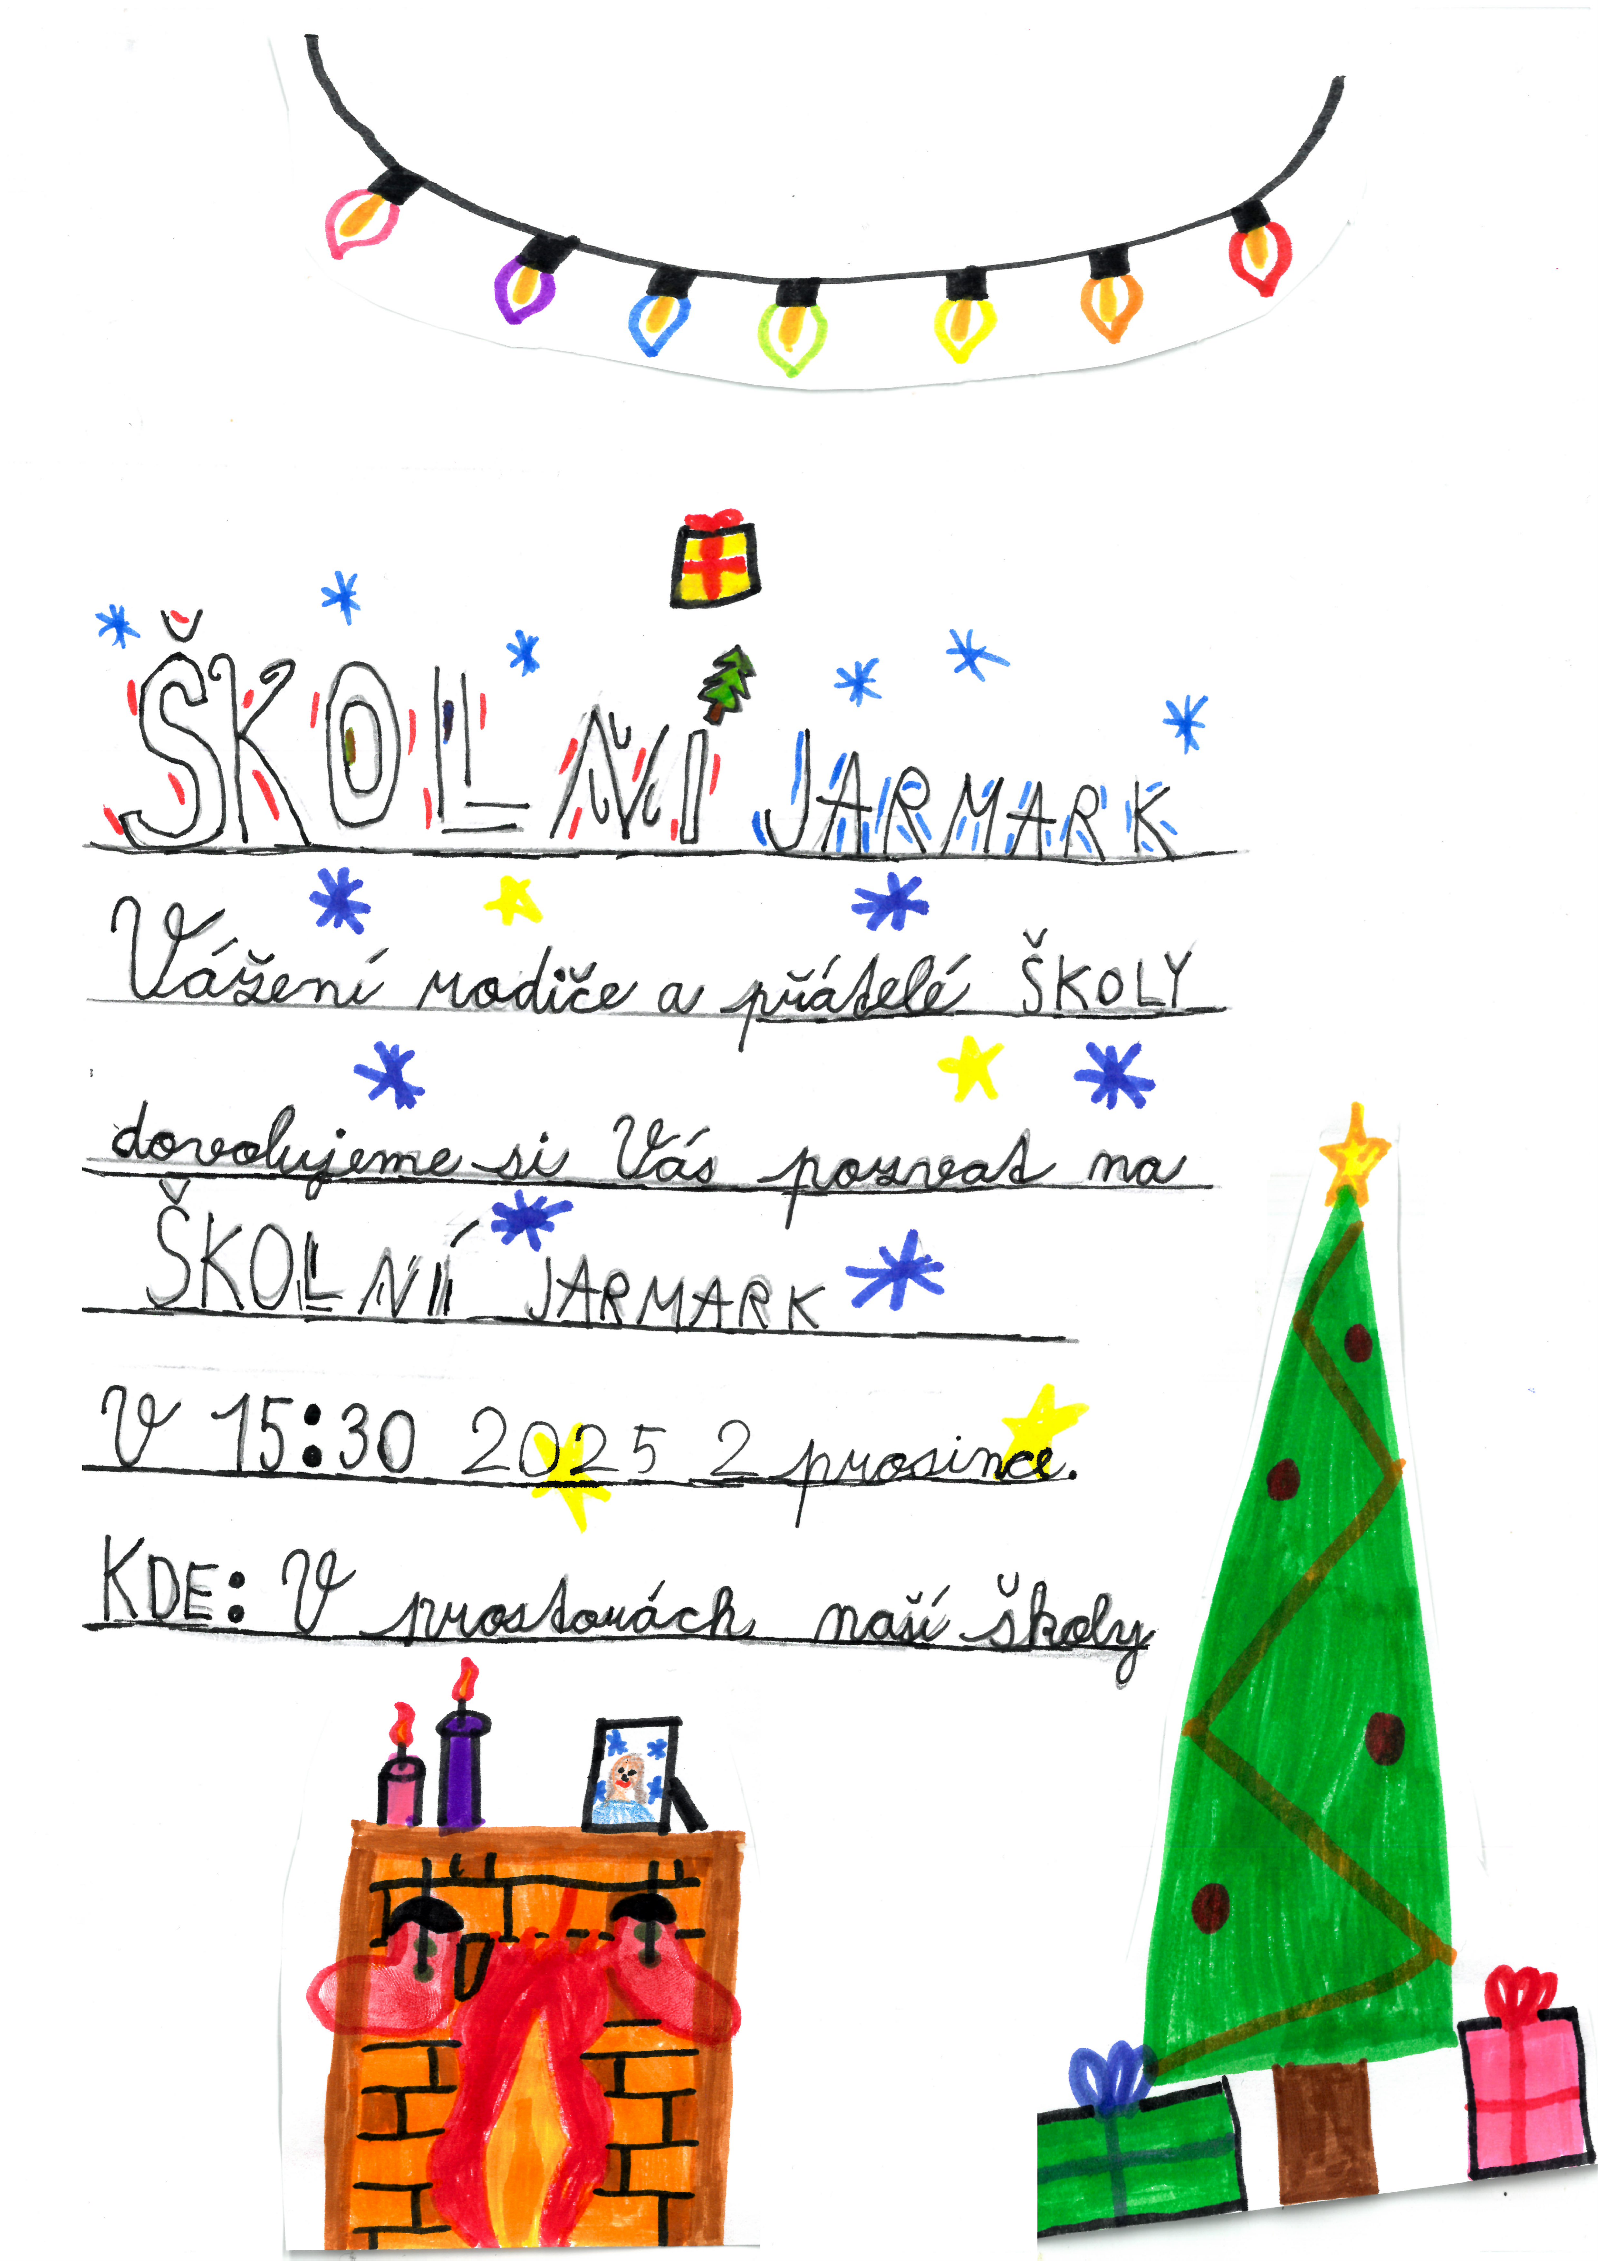 ŠKOLNÍ JARMARK
Vážení rodiče a přátelé ŠKOLY
dovolujeme si Vás pozvat na
ŠKOLNÍ JARMARK
V 15:30 2025 2 prosince.
KDE: V prostorách naší školy